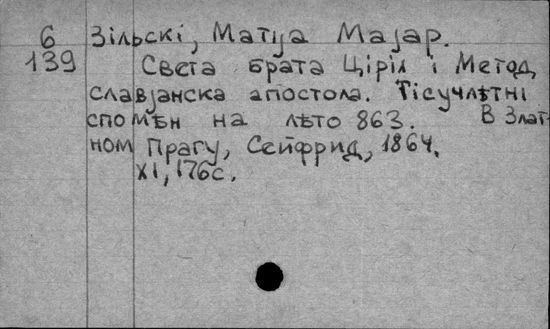 6 Зільскі, Матіја Мајар.
139 Света брата Ціріл і Метод,
славјанска апостола. Тісучлѣтні
спомѣн на лѣто 863. В Злат-
ном Прагу, Сейфрид, 1864.
XI, 176с.